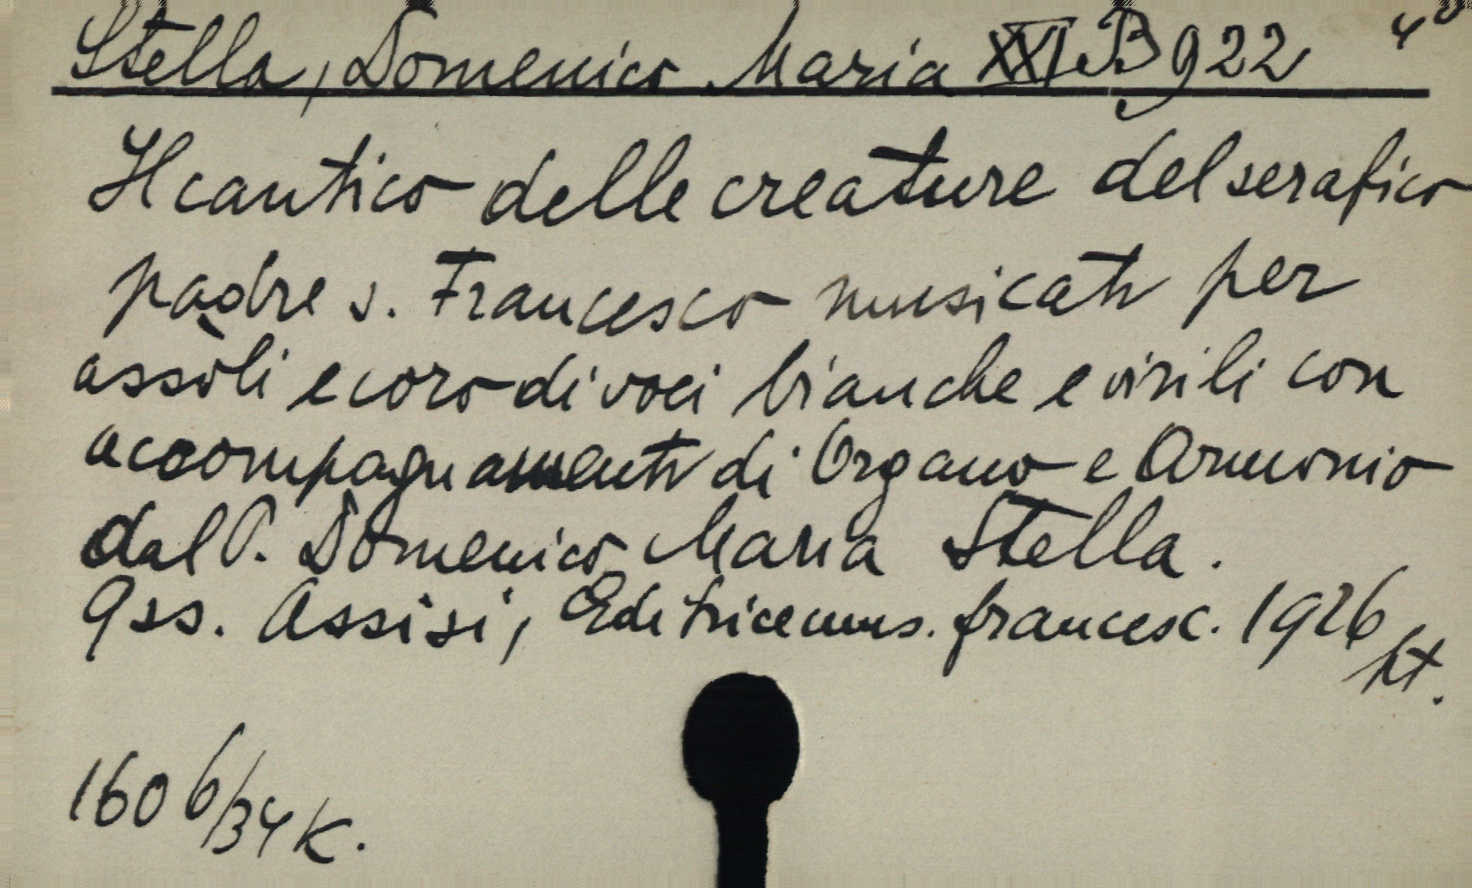 Stella, Domenico Maria XXI B 922 4°
Il cantico delle creature del serafico
padre s. Francesco musicato per
assòli e coro di voci bianche e virili con
accompagnamento di Organo e Armonio
dal P. Domenico Maria Stella.
9 ss. Assisi, Editrice mus. francesc. 1926
kt.
160 6/34 K.